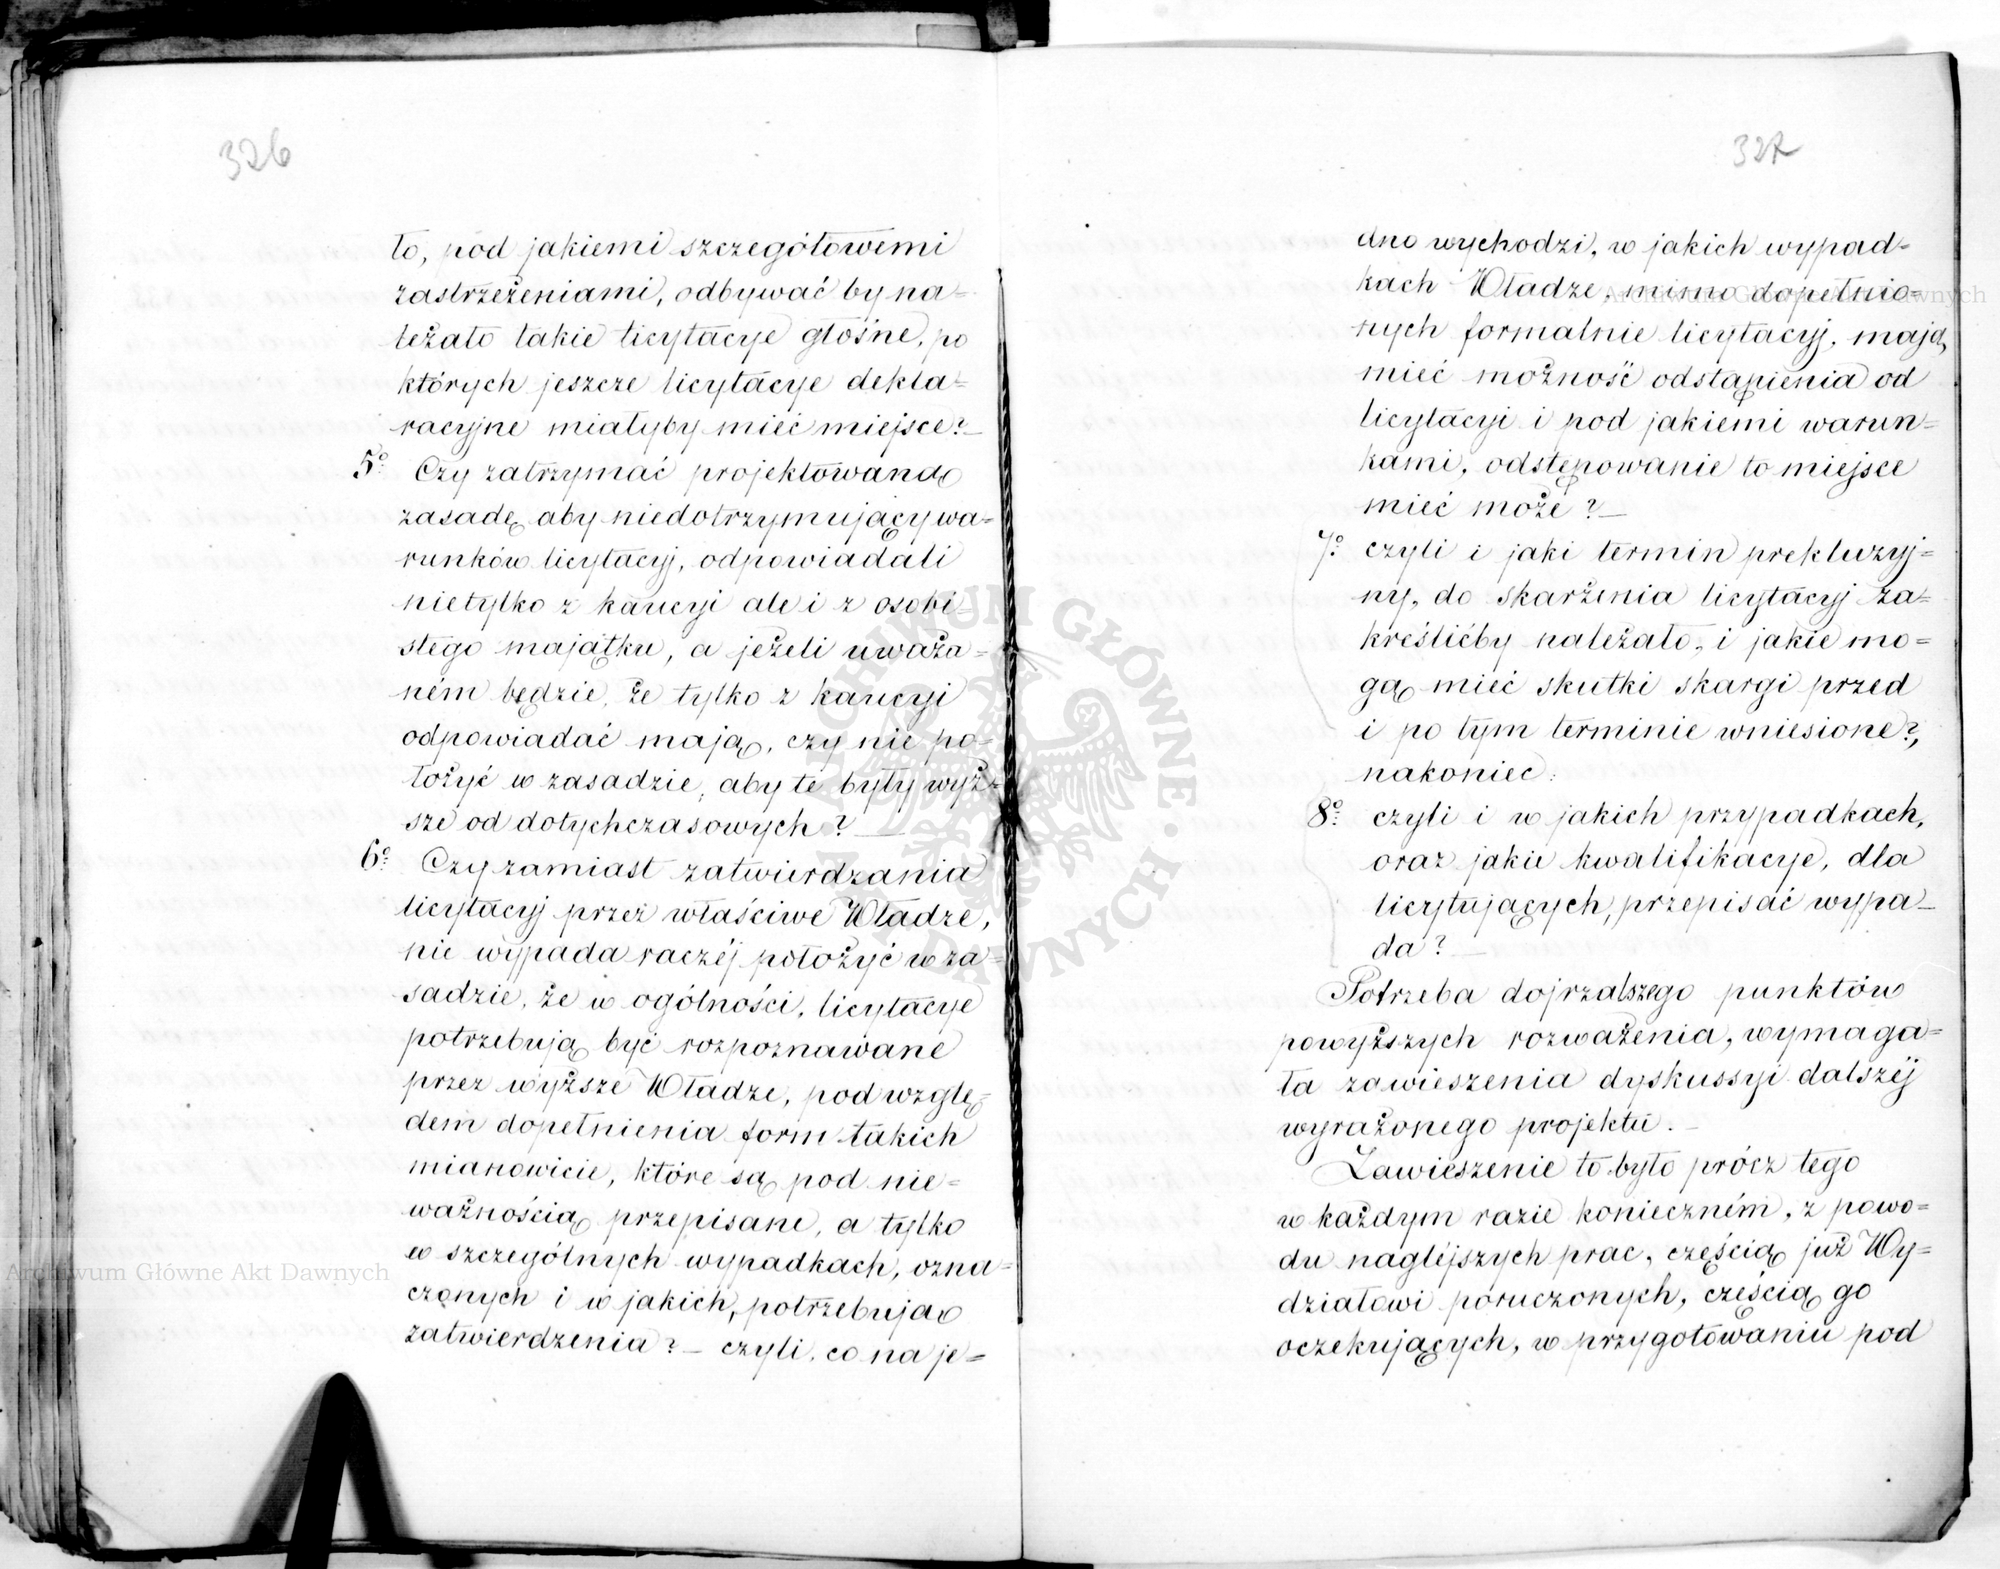 326
to, pod jakiemi szczegółowemi
zastrzeżeniami, odbywać by na=
leżało takie licytacye głośne, po
których jeszcze licytacye dekla=
racyjne miałyby mieć miejsce? —
5º Czy zatrzymać projektowaną
zasadę, aby niedotrzymujący wa=
runków licytacyj, odpowiadali
nietylko z kaucyi ale i z osobi=
stego majątku, a jeżeli uważa=
ném będzie, że tylko z kaucyi
odpowiadać mają, czy nie po=
łożyć w zasadzie, aby te były wyż=
sze od dotychczasowych? —
6º Czy zamiast zatwierdzania
licytacyj przez właściwe Władze,
nie wypada raczéj położyć w za=
sadzie, że w ogólności, licytacye
potrzebują być rozpoznawane
przez wyższe Władze, pod wzglę=
dem dopełnienia form takich
mianowicie, które są pod nie=
ważnością przepisane, a tylko
w szczególnych wypadkach, ozna=
czonych i w jakich, potrzebują
zatwierdzenia? — czyli, co na je=
327
dno wychodzi, w jakich wypad=
kach Władze, mimo dopełnio=
nych formalnie licytacyj, mają
mieć możność odstąpienia od
licytacyi i pod jakiemi warun=
kami, odstępowanie to miejsce
mieć może? —
7º czyli i jaki termin prekluzyj=
ny, do skarżenia licytacyj za=
kreślićby należało, i jakie mo=
gą mieć skutki skargi przed
i po tym terminie wniesione?,
nakoniec:
8º czyli i w jakich przypadkach,
oraz jakie kwalifikacye, dla
licytujących, przepisać wypa=
da? —
Potrzeba dojrzalszego punktów
powyższych rozważenia, wymaga=
ła zawieszenia dyskussyi dalszéj
wyrażonego projektu. —
Zawieszenie to było prócz tego
w każdym razie konieczném, z powo=
du naglejszych prac, częścią już Wy=
działowi poruczonych, częścią go
oczekujących, w przygotowaniu pod
Archiwum Główne Akt Dawnych
Archiwum Główne Akt Dawnych
ARCHIWUM GŁÓWNE AKT DAWNYCH